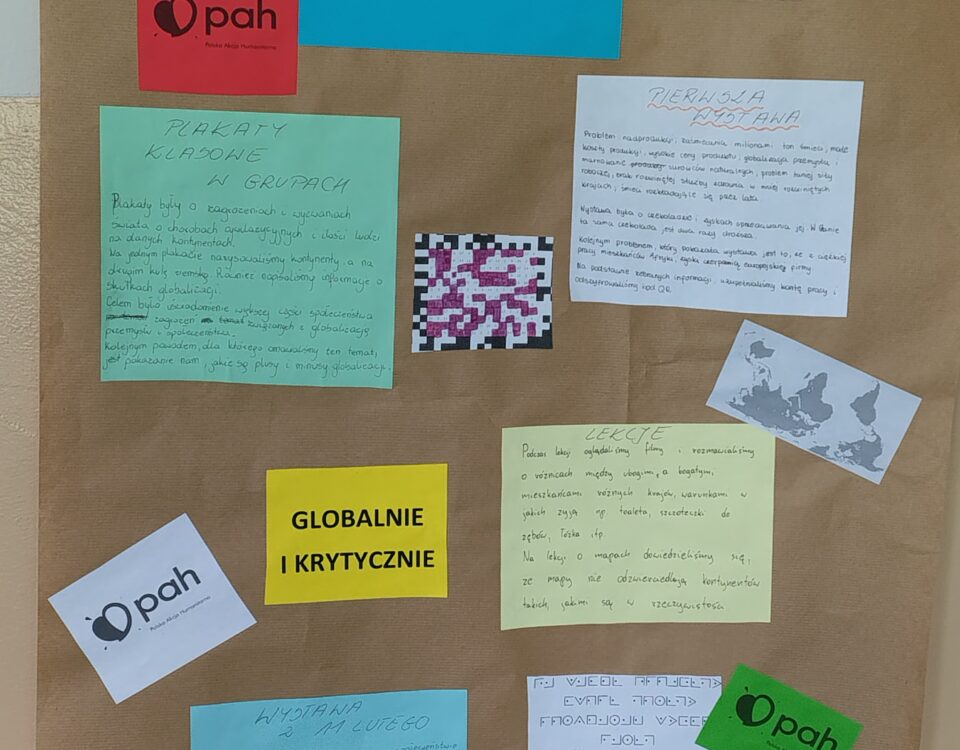 pah
Polska Akcja Humanitarna
PIERWSZA
WYSTAWA
Problem nadprodukcji, zaśmiecania milionami ton śmieci, małe
koszty produkcji, wysokie ceny produktu, globalizacja przemysłu, i
marnowanie surowców naturalnych, problem taniej siły
roboczej, brak rozwiniętej służby zdrowia w mniej rozwiniętych
krajach, śmieci rozkładające się przez lata.
Wystawa była o czekoladzie i zyskach sprzedawania jej. W
ta sama czekolada jest dwa razy droższa.
Kolejnym problemem, który pokazała wystawa jest to, że z ciężkiej
pracy mieszkańców Afryki, zyski czerpią europejskie firmy
Na podstawie zebranych informacji, uzupełnialiśmy kartę pracy i
odszyfrowaliśmy kod QR.
PLAKATY
KLASOWE
W GRUPACH
Plakaty były o zagrożeniach i wyzwaniach
świata, o chorobach cywilizacyjnych i ilości ludzi
na danych kontynentach.
Na jednym plakacie narysowaliśmy kontynenty, a na
drugim kulę ziemską. Również napisaliśmy informacje o
skutkach globalizacji.
Celem było uświadomienie większej części społeczeństwa
zagrożeń związanych z globalizacją
przemysłu i społeczeństwa.
Kolejnym powodem, dla którego omawialiśmy ten temat,
jest pokazanie nam, jakie są plusy i minusy globalizacji.
LEKCJE
Podczas lekcji oglądaliśmy filmy i rozmawialiśmy
o różnicach między ubogimi, a bogatymi
mieszkańcami różnych krajów, warunkami w
jakich żyją np. toaleta, szczoteczki do
zębów, łóżka itp.
Na lekcji o mapach dowiedzieliśmy się,
że mapy nie odzwierciedlają kontynentów
takich, jakimi są w rzeczywistości.
GLOBALNIE
I KRYTYCZNIE
pah
Polska Akcja Humanitarna
WYSTAWA
Z 11 LUTEGO
pah